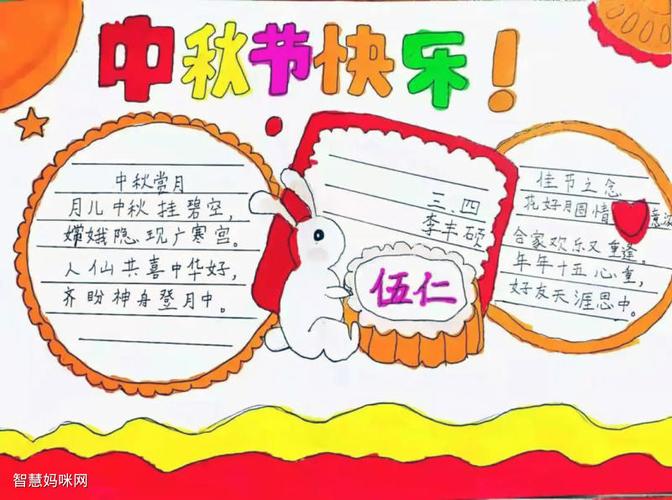 中秋节快乐！
中秋赏月
月儿中秋挂碧空，
嫦娥隐现广寒宫。
人仙共喜中华好，
齐盼神舟登月中。
三.四
李丰硕
伍仁
佳节之念
花好月圆情意浓
合家欢乐又重逢。
年年十五心重，
好友天涯思中。
智慧妈咪网